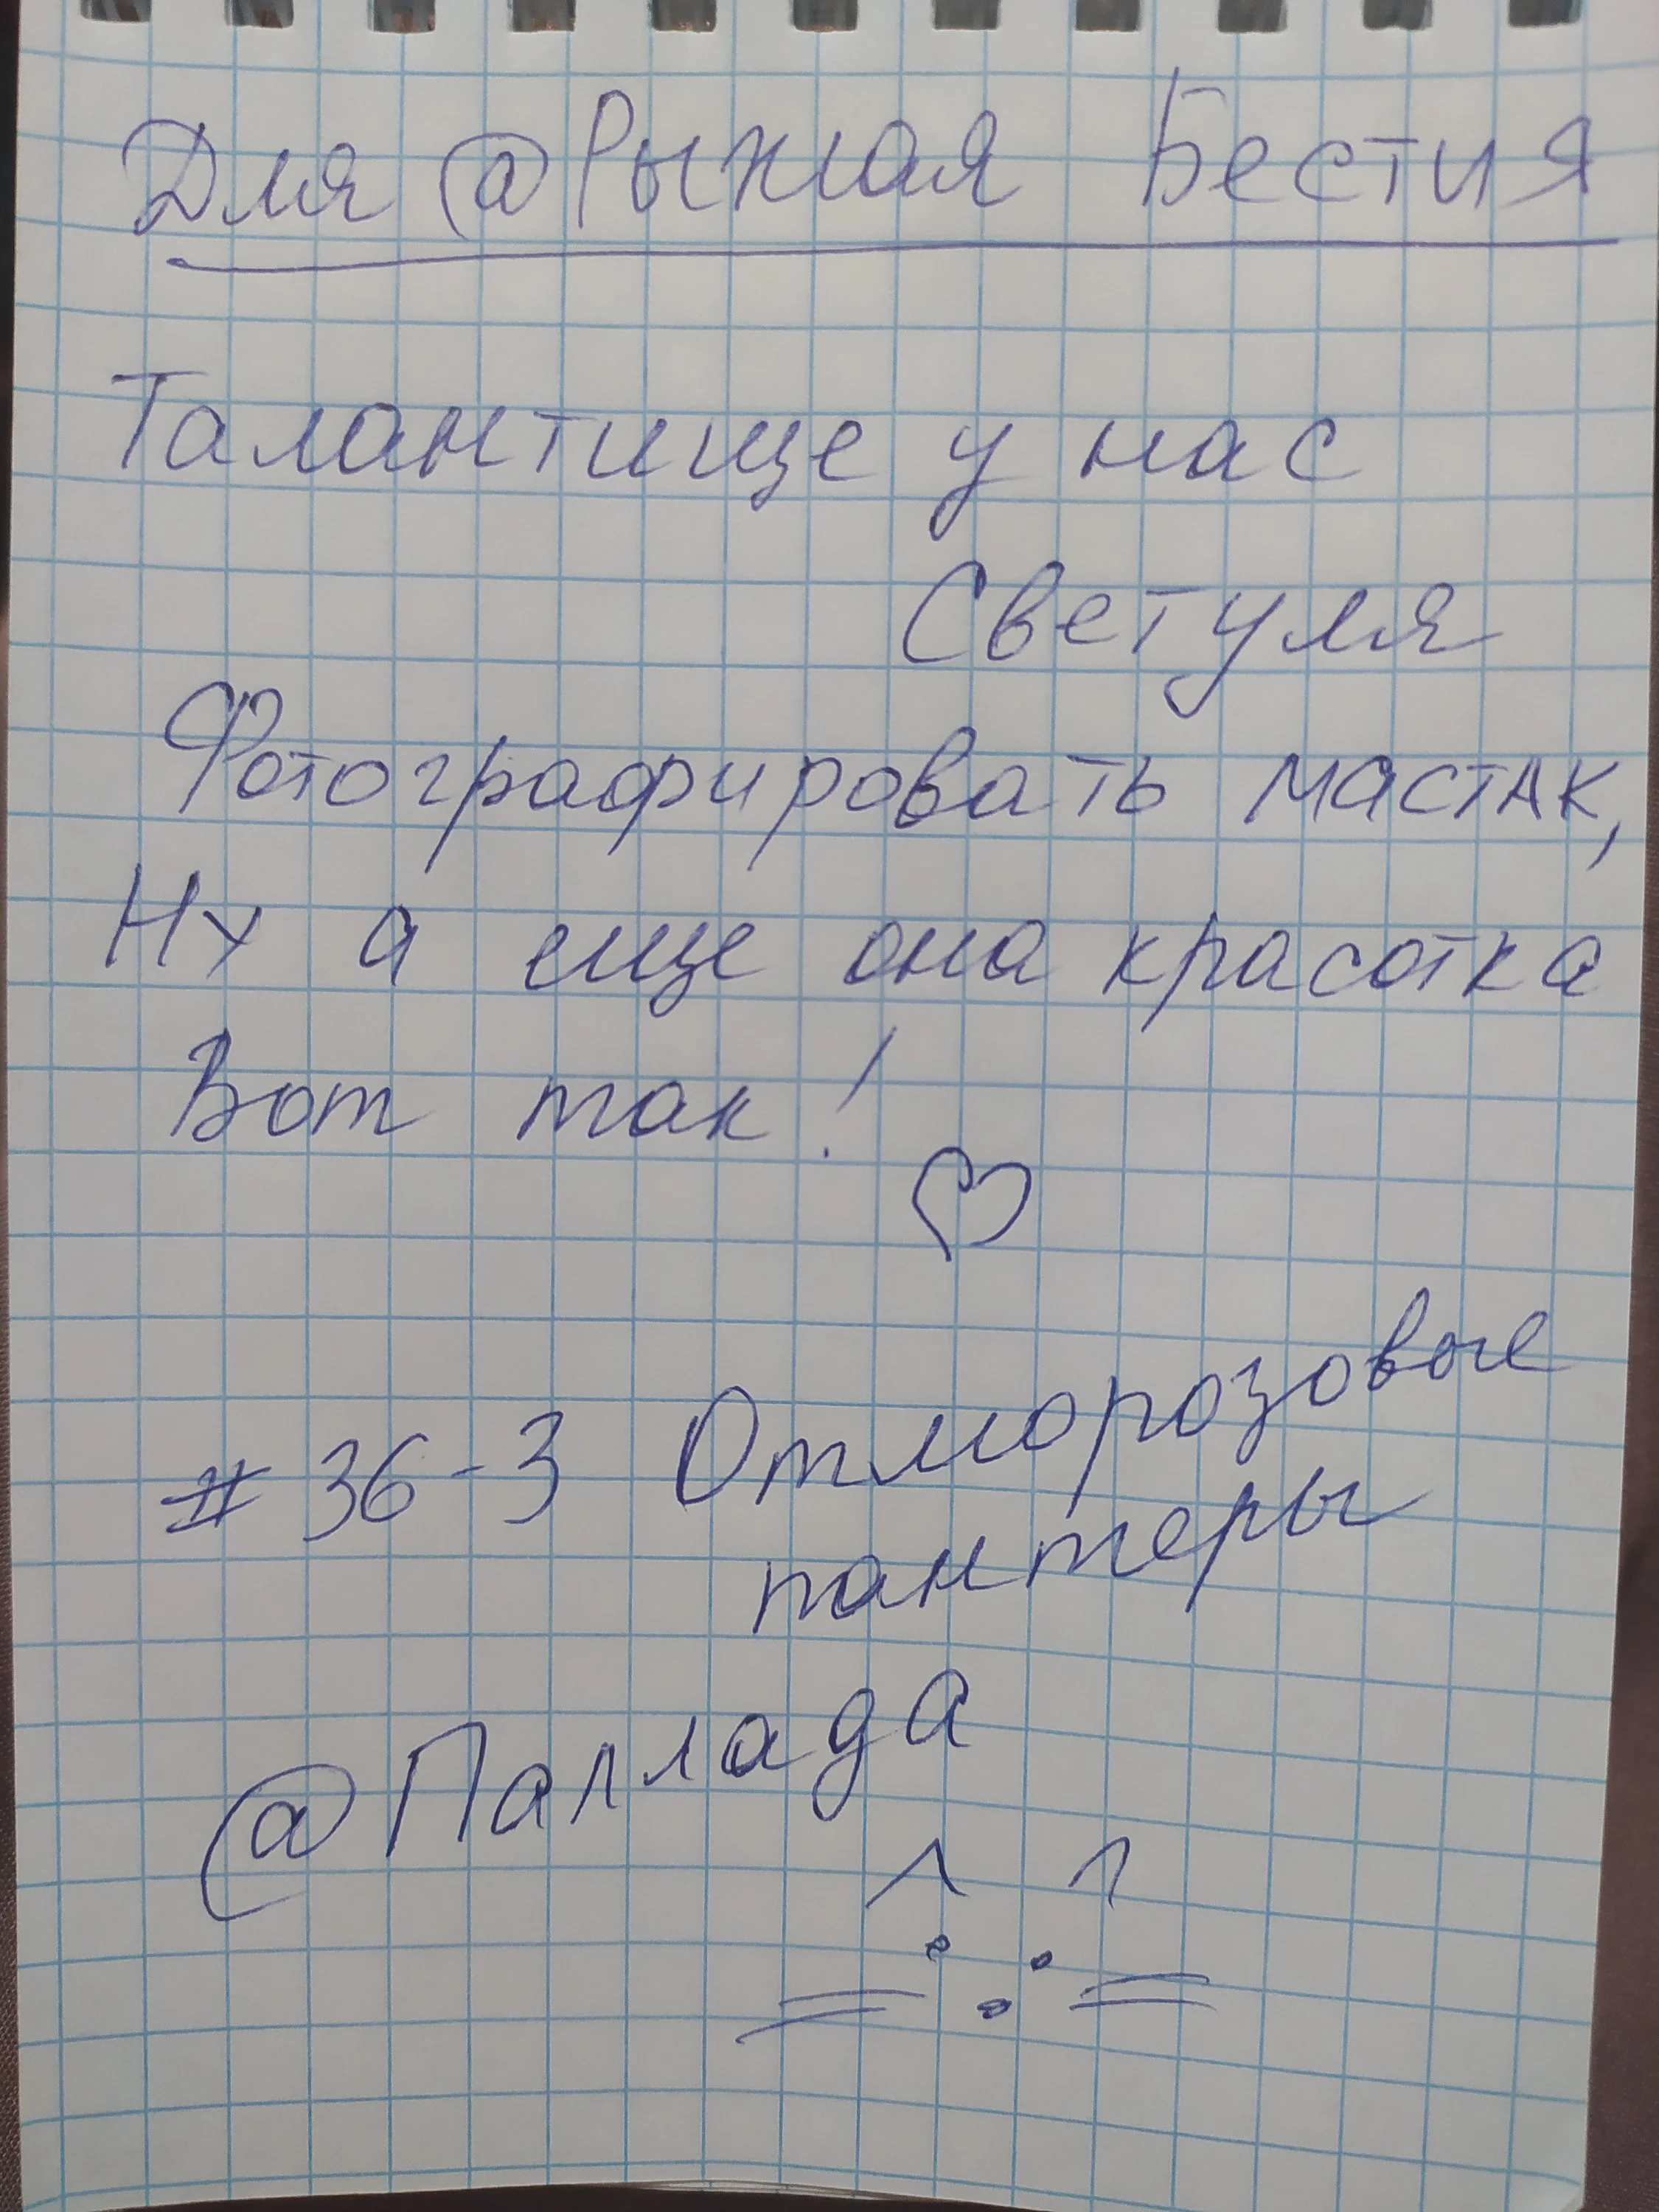 Для @Рыжая Бестия
Талантище у нас
Светуля
Фотографировать мастак,
Ну а еще она красотка
Вот так!
#36-3 Отморозовые
пантеры
@Паллада